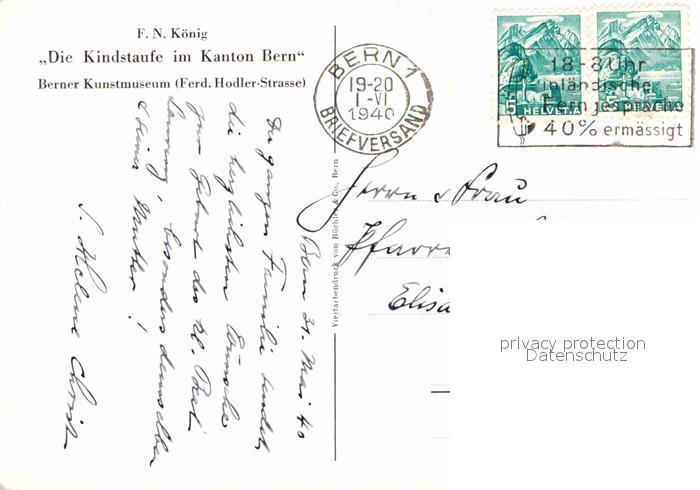 F. N. König
„Die Kindstaufe im Kanton Bern“
Berner Kunstmuseum (Ferd. Hodler-Strasse)
BERN 1
19-20
1-VI
1940
BRIEFVERSAND
18-8 Uhr
inländische
Ferngespräche
40% ermässigt
5 HELVETIA
HELVETIA
Vierfarbendruck von Büchler & Co., Bern
Bern 31. Mai 40
Der ganzen Familie sendet
die herzlichsten Wünsche
zur Geburt des kl.
besonders demselben
& seiner Mutter!
Helene
Herrn & Frau
Pfarre
Elisa
privacy protection
Datenschutz